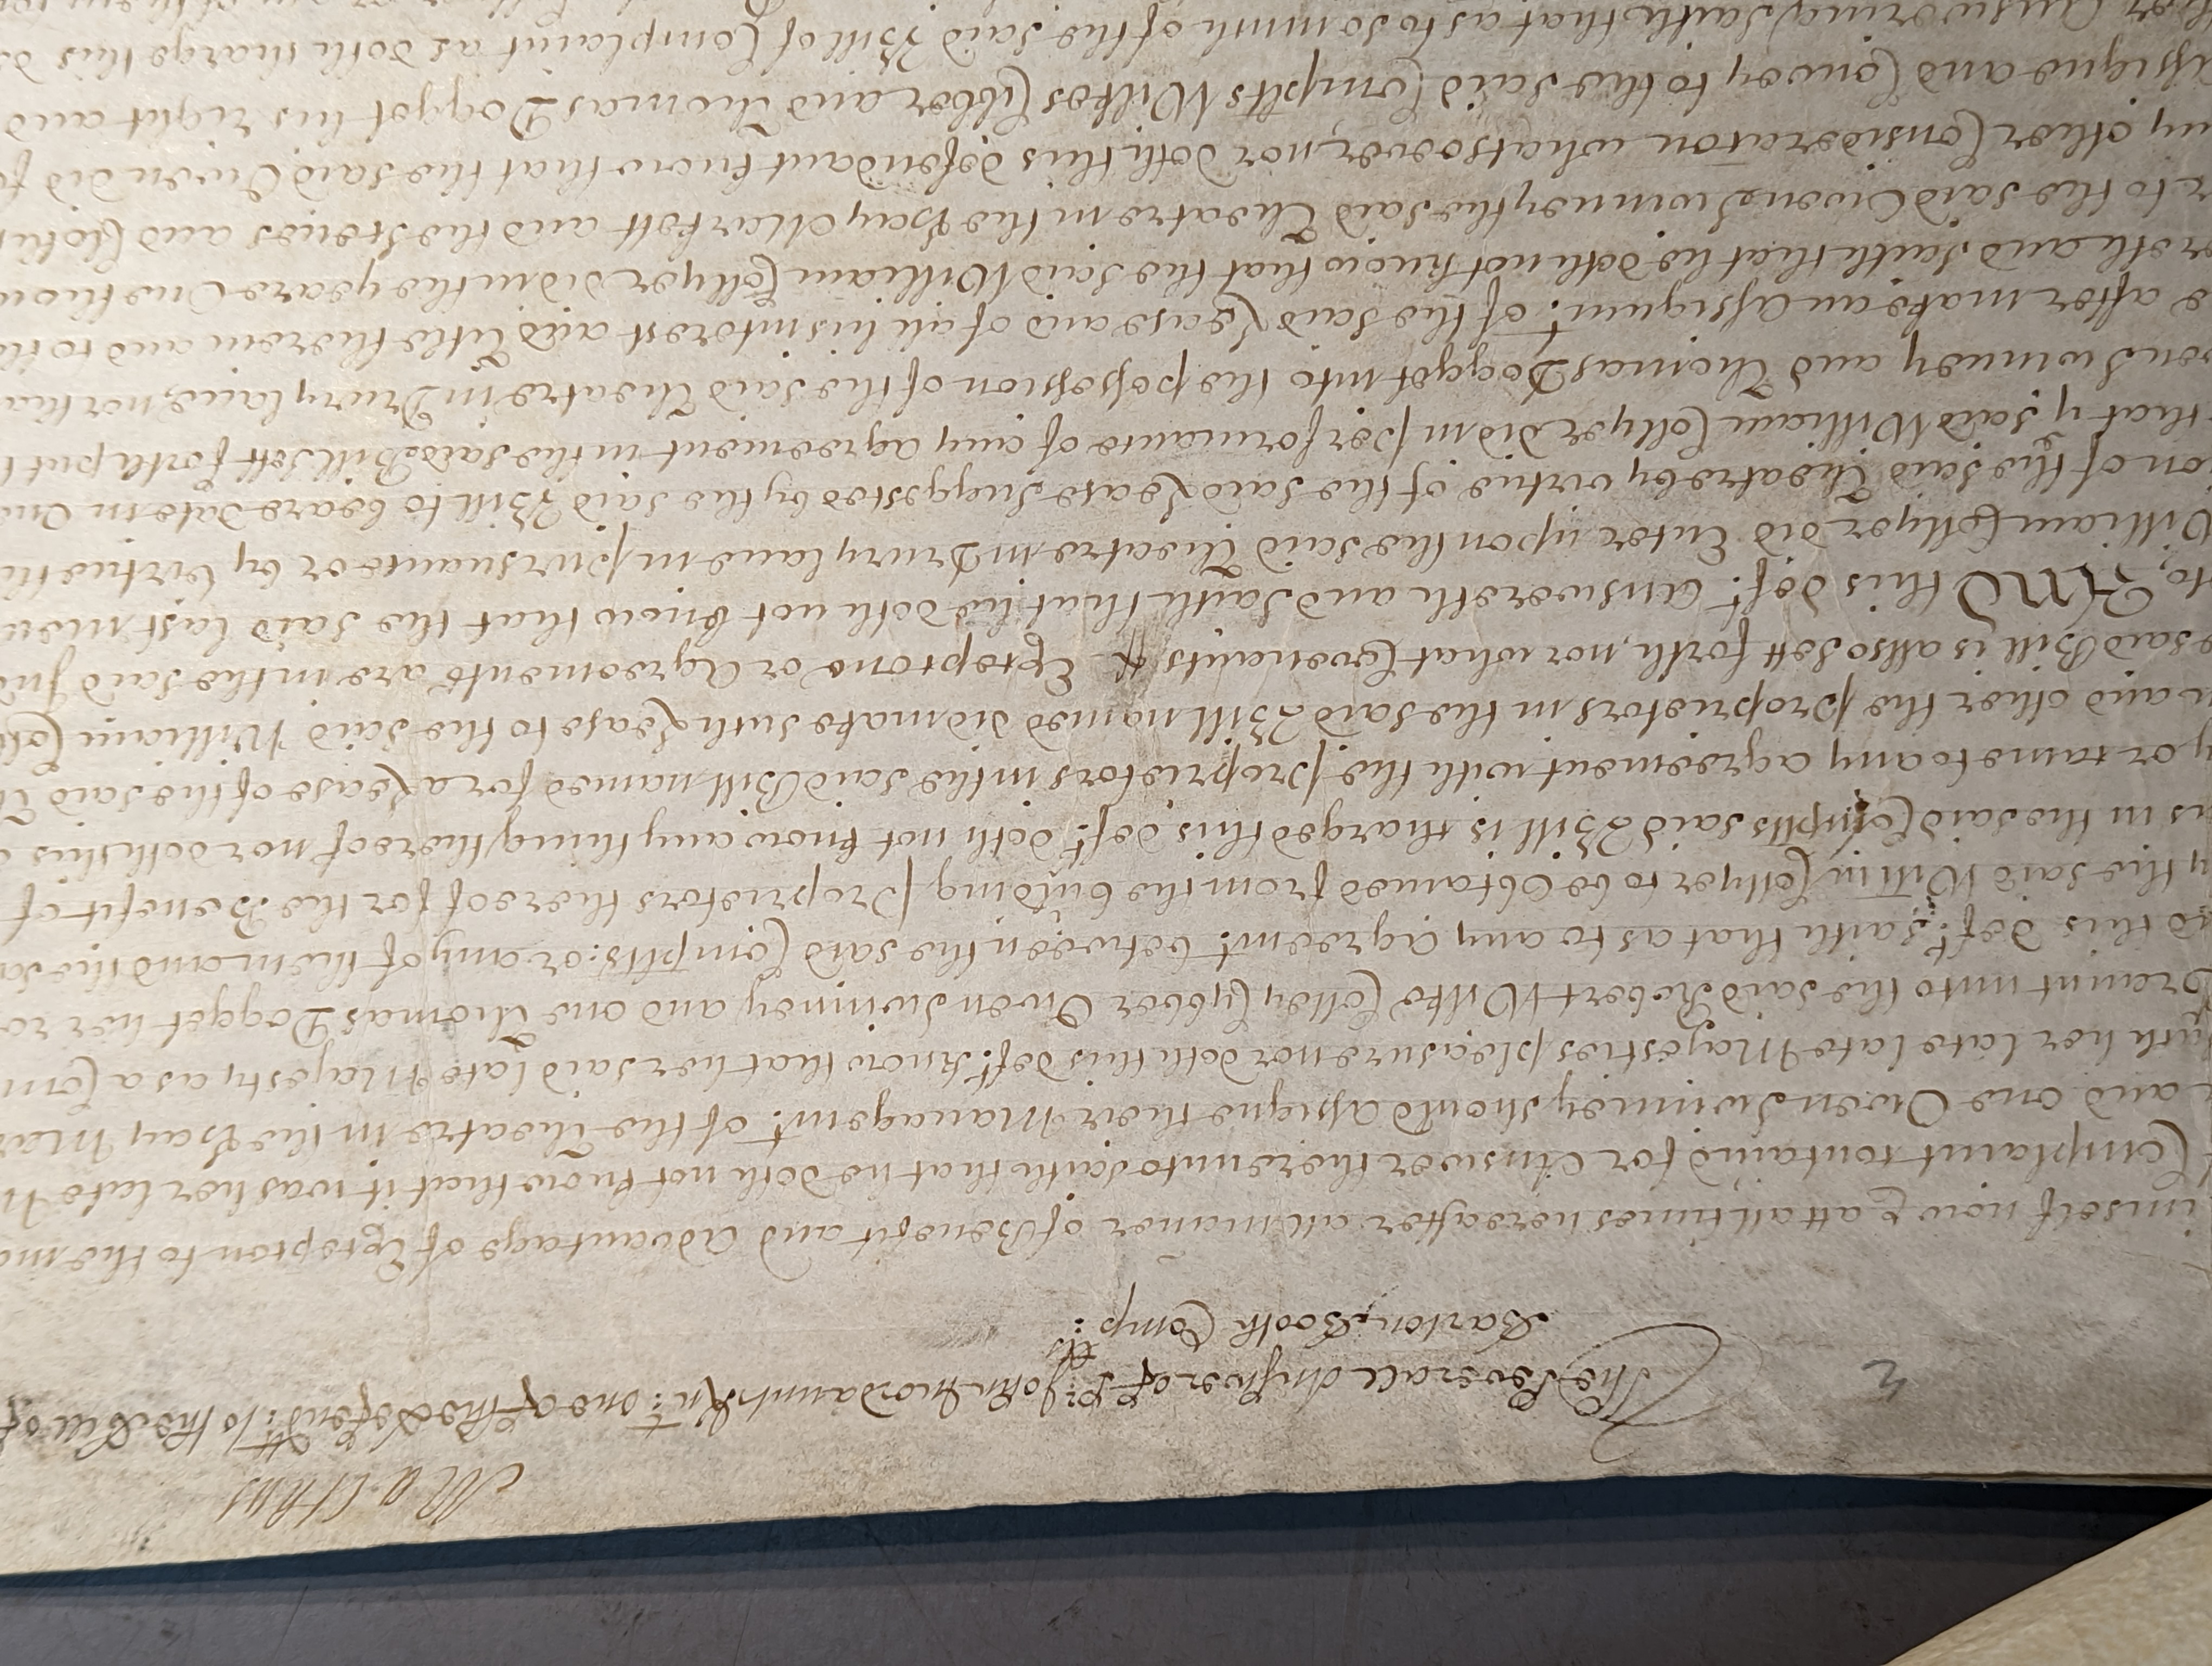 Mathews
2
The Severall Answer of Sr: John Mordaunt Knt: one of the Defendts: to the Bill of
Barton Booth Complts:
imself now & att all times hereafter all maner of Benefit and Advantage of Exception to the
Complaint containd for Answer thereunto saith that he doth not know that it was her late
and one Owen Swinney should assigne their Managemt: of the Theatre in the Hay
her late Majesties pleasure nor doth this Deft: know that her said late Majesty as a
Graunt unto the said Robert Wilks Colley Cybber Owen Swinney and one Thomas Dogget her
this Deft: saith that as to any agreemt: between the said Complts: or any of them and the
the said Willm Collyer to be Obtained from the building proprietors thereof for the Benefit of
in the said Complts said Bill is charged this Deft: doth not know any thing thereof nor doth this
or came to any agreement with the proprietors in the said Bill named for a Lease of the said
and other the proprietors in the said Bill named did make such Lease to the said William
said Bill is allso sett forth, nor what Covenants & Exceptions or Agreements are in the said
to, AND this Deft: Answereth and Saith that he doth not know that the said last
William Collyer did Enter upon the said Theatre in Drury lane in pursuance or by virtue
of the said Theatre by virtue of the said Lease Suggested by the said Bill to beare date in
that ye said William Collyer did in performance of any agreement in the said Bill sett forth put
Swinney and Thomas Dogget into the possession of the said Theatre in Drury lane, nor
after make an Assignmt: of the said Lease and of all his interest and Title therein and to
and saith that he doth not know that the said William Collyer did in the yeare One
to the said Owen Swinney the said Theatre in the Hay Markett and the Scenes and
other Consideration whatsoever, nor doth this defendant know that the said Owen did
Assigne and Convey to the said Complts Wilkes Cibber and Thomas Dogget his right and
Answering saith that as to so much of the said Bill of Complaint as doth charge this